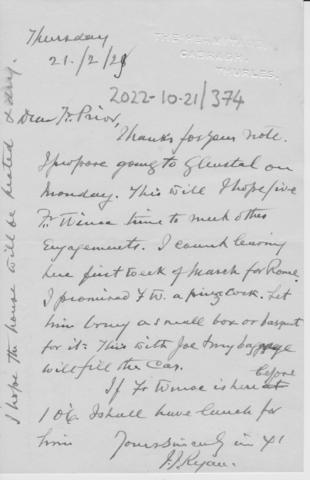 Thursday
THE HERMITAGE,
CABRAGH,
THURLES.
21./2/28
2022-10-21/374
Dear Fr. Prior,
Thanks for your note.
I propose going to Glenstal on
Monday. This will I hope give
Fr Winoc time to meet other
Engagements. I count leaving
here first week of March for Rome.
I promised F W. a ping Cock. Let
him bring a small box or basquet
for it: This with Joe & my baggage
will fill the Car.
If Fr Winoc is here before
1 o'c. I shall have lunch for
him
Yours sincerely in Xt
J.J. Ryan.
I hope the house will be heated & dry.